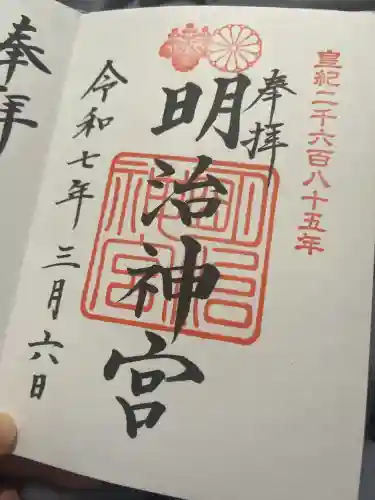 皇紀二千六百八十五年
奉拝
明治神宮
明治神宮
令和七年三月六日
奉拝